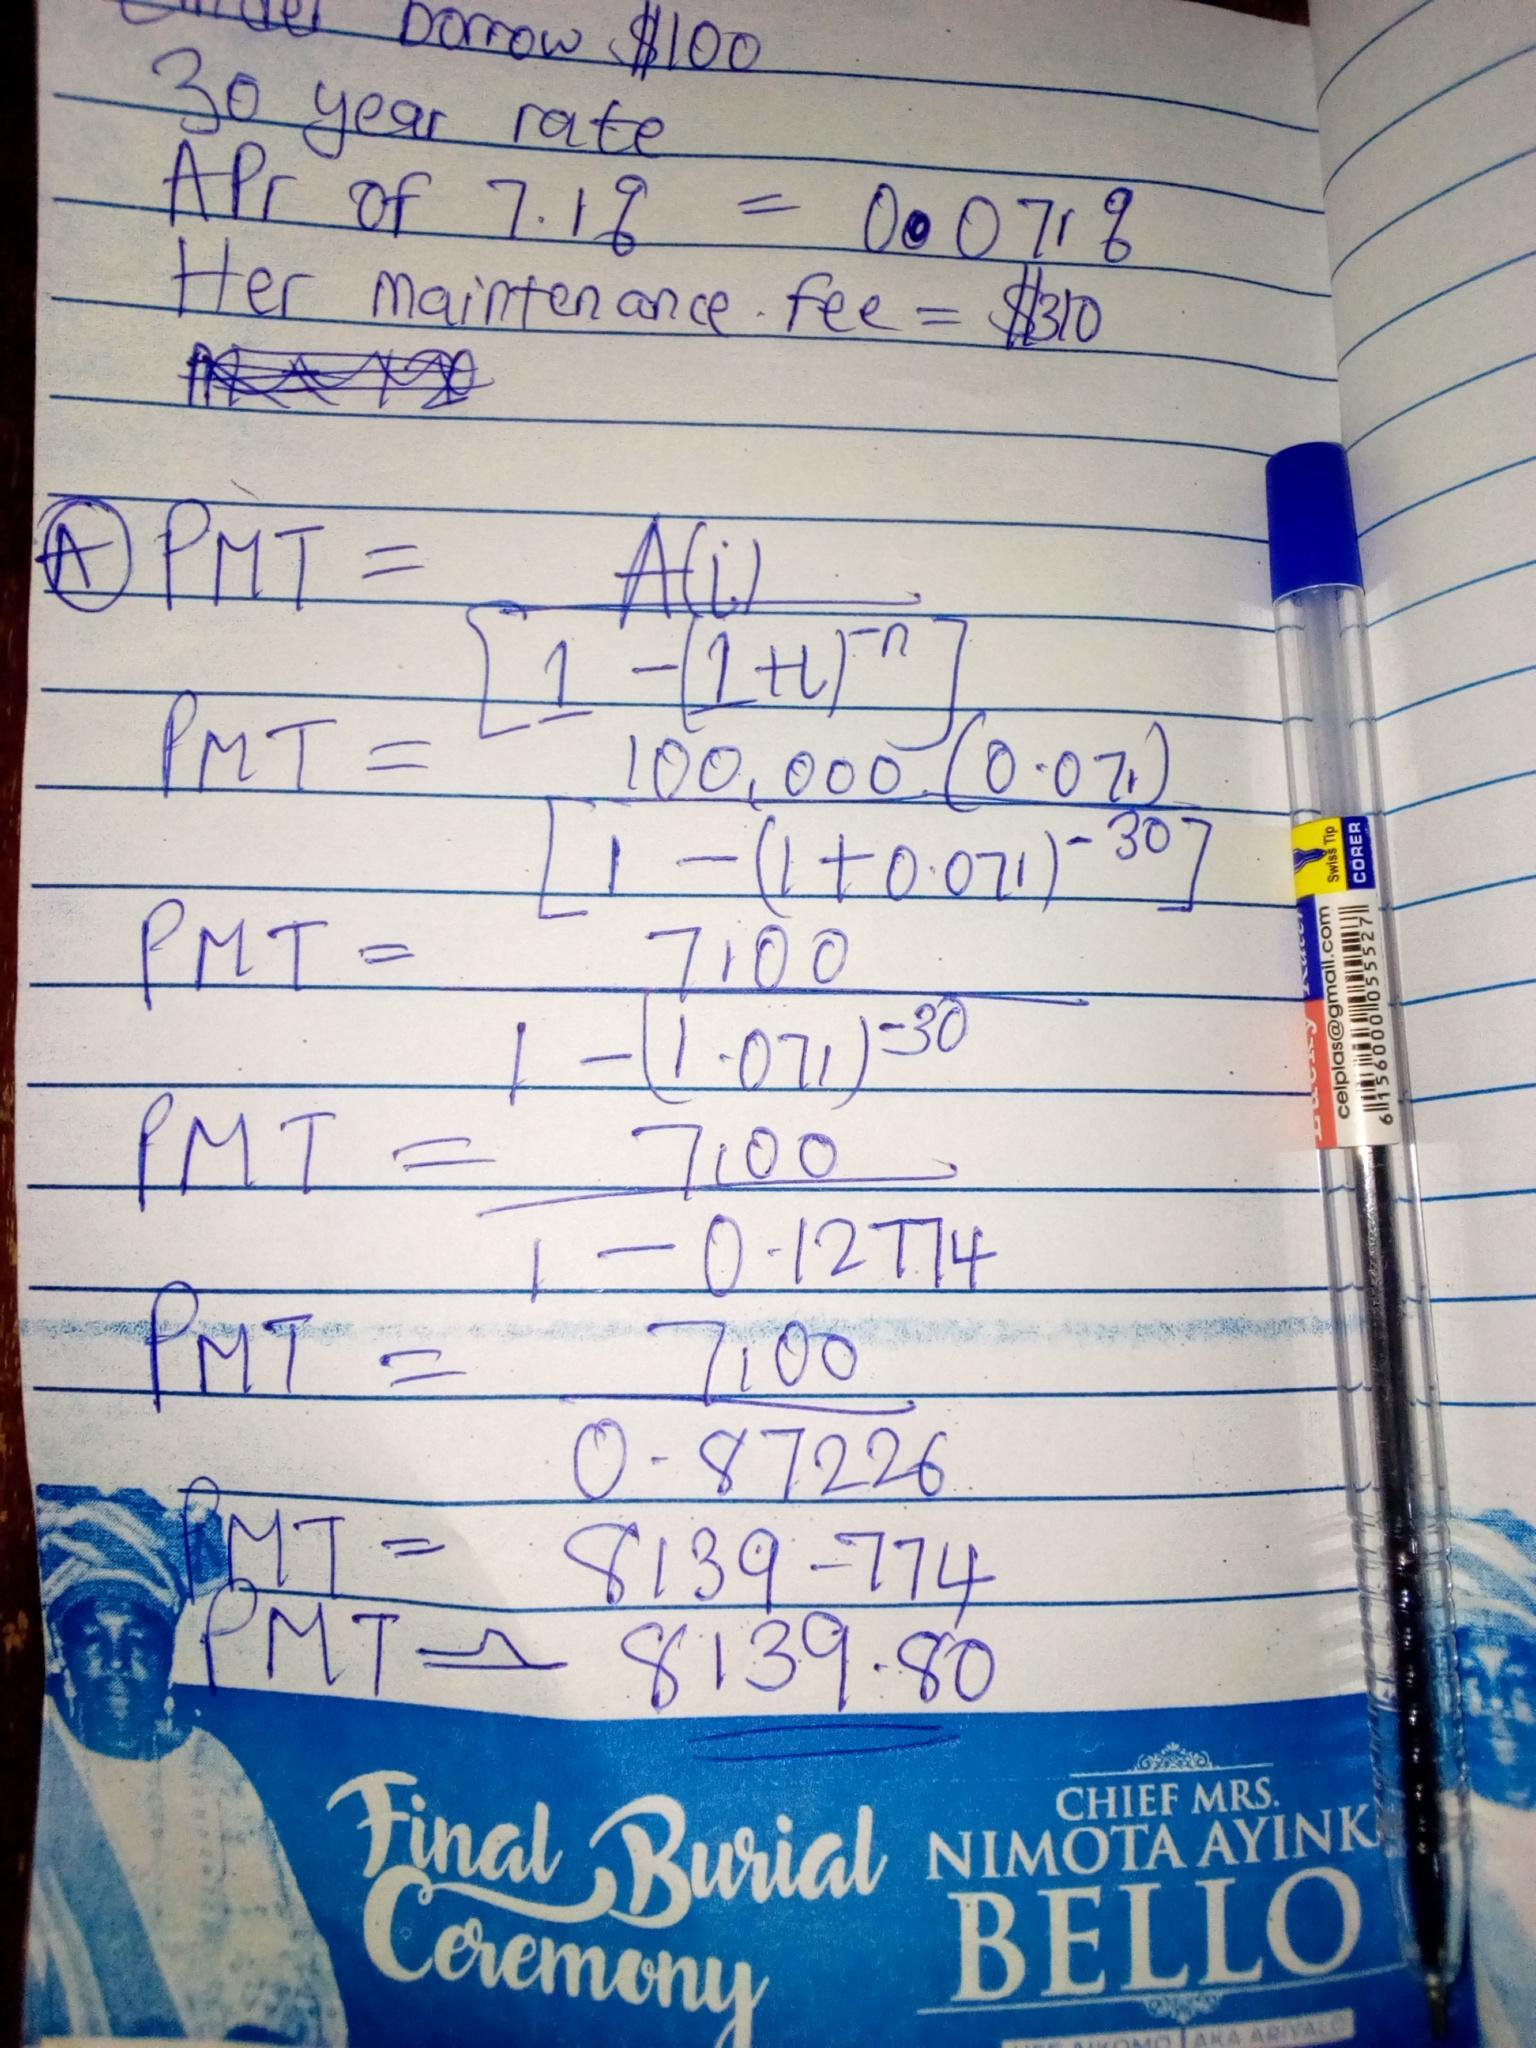 borrow $100
30 year rate
APr of 7.1% = 0.071%
Her maintenance fee = $310
A PMT = A(i)
[1 - (1+i)^-n]
PMT = 100,000 (0.071)
[1 - (1+0.071)^-30]
PMT = 7100
1 - (1.071)^-30
PMT = 7100
1 - 0.12774
PMT = 7100
0.87226
PMT = 8139.774
PMT ≏ 8139.80
Final Burial Ceremony
CHIEF MRS.
NIMOTA AYINK
BELLO
AKA ARIYALO
Swiss Tip
CORER
celplas@gmail.com
6156000055527